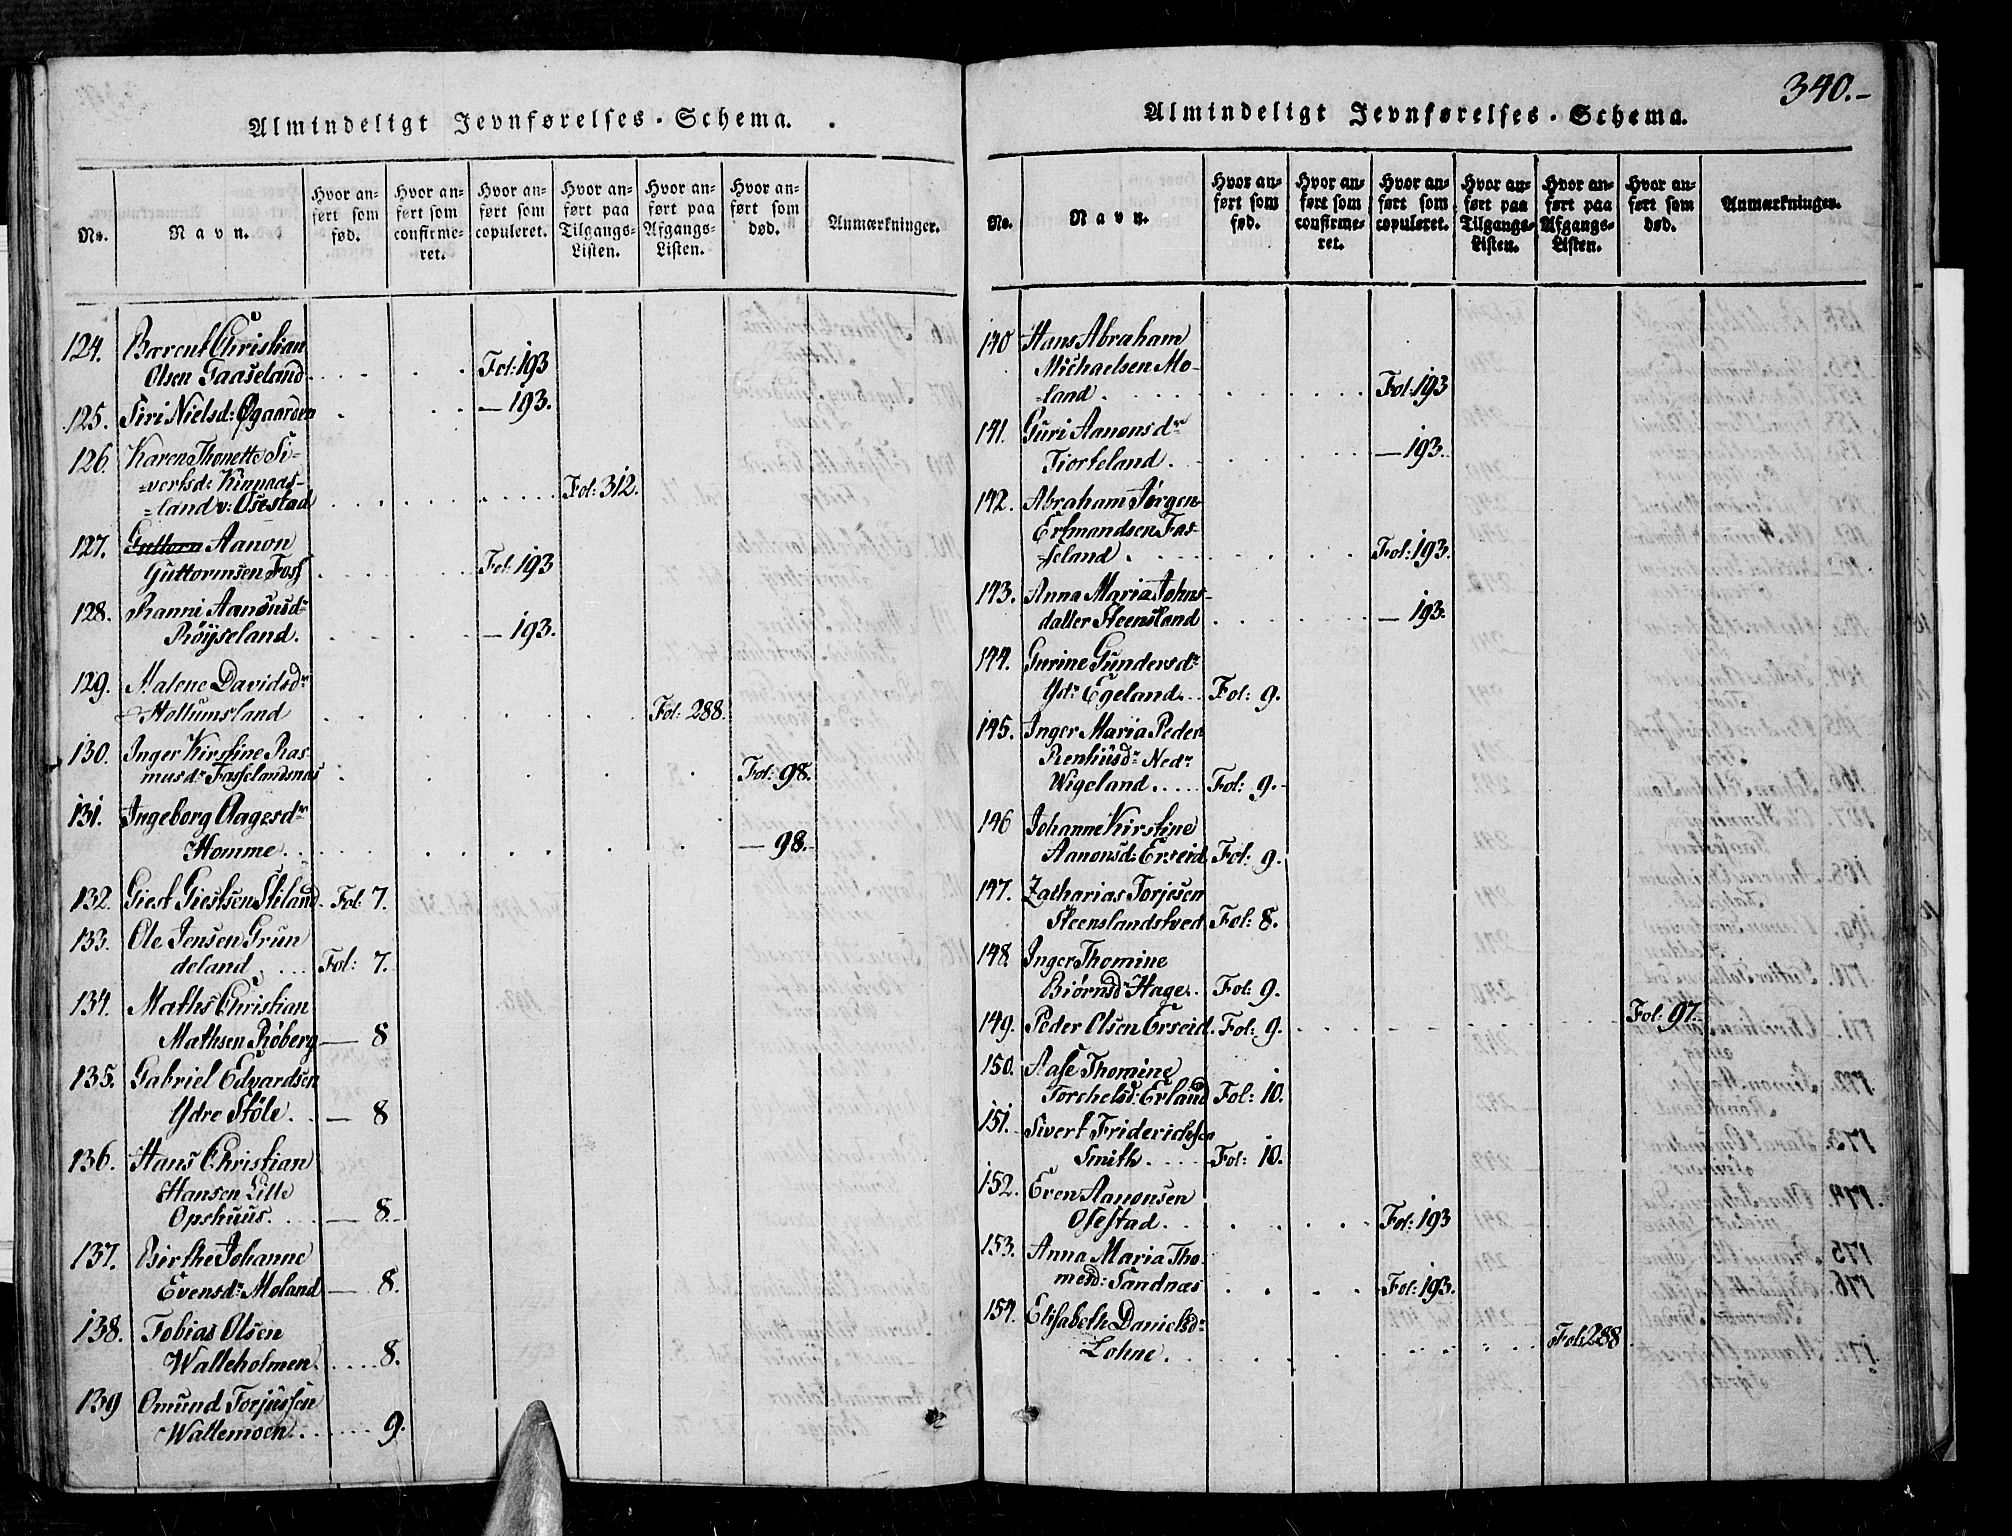 Almindeligt Jevnførelses-Schema.
No.
Navn.
Hvor anført som fød.
Hvor anført som confirmeret.
Hvor anført som copuleret.
Hvor anført paa Tilgangs-Listen.
Hvor anført paa Afgangs-Listen.
Hvor anført som død.
Anmærkninger.
124. Bærent Christian
Olsen Gaaseland Fol: 193
125. Siri Nielsd: Øgaarden — 193.
126. Karen Thonette Si-
=vertsd: Kinnaas-
=land v: Osestad Fol: 312.
127. Guttorm Aanon
Guttormsen Foss Fol: 193
128. Ranni Aanonsdr
Röÿseland. — 193.
129. Malene Davidsdr
Hollumsland Fol: 288.
130. Inger Kirstine Ras-
musdr Fasselandsnæs Fol: 98.
131. Ingeborg Aagesdr
Homme. — 98.
132. Giest Giestsen Stiland Fol: 7.
133. Ole Jensen Grun
deland Fol: 7.
134. Maths Christian
Mathsen Röberg — 8
135. Gabriel Edvardsen
Ydre Støle. — 8
136. Hans Christian
Hansen Lille
Opshuus. — 8.
137. Birthe Johanne
Evensdr Moland — 8.
138. Tobias Olsen
Walleholmen. 8.
139 Omund Torjussen
Wallemoen. 9.
340.-
Almindeligt Jevnførelses-Schema.
No.
Navn.
Hvor anført som fød.
Hvor anført som confirmeret.
Hvor anført som copuleret.
Hvor anført paa Tilgangs-Listen.
Hvor anført paa Afgangs-Listen.
Hvor anført som død.
Anmærkninger.
140 Hans Abraham
Michaelsen Mo-
=land. Fol: 193
141. Guri Aanonsdr
Fiorteland. — 193.
142. Abraham Jørgen
Ertmandsen Fas-
seland. Fol: 193.
143. Anna Maria Johns-
datter Steensland — 193.
144. Gurine Gundersdr
Ydr Egeland. Fol: 9.
145. Inger Maria Peder
Renhusdr Nedr
Wigeland. Fol: 9.
146 Johanne Kirstine
Aanonsd: Erseid Fol: 9.
147. Zacharias Torjesen
Steenslandstved Fol: 8.
148. Inger Thomine
Biørnsdr Hage. Fol: 9.
149. Peder Olsen Erseid. Fol: 9. Fol: 97.
150. Aase Thomine
Torchelsd: Erland Fol: 10.
151. Sivert Friderichsen
Smith. Fol: 10.
152. Even Aanonsen
Osestad. Fol: 193
153. Anna Maria Tho
mesd: Sandnæs Fol: 193.
154. Elisabeth Danielsdr
Lohne. Fol: 288